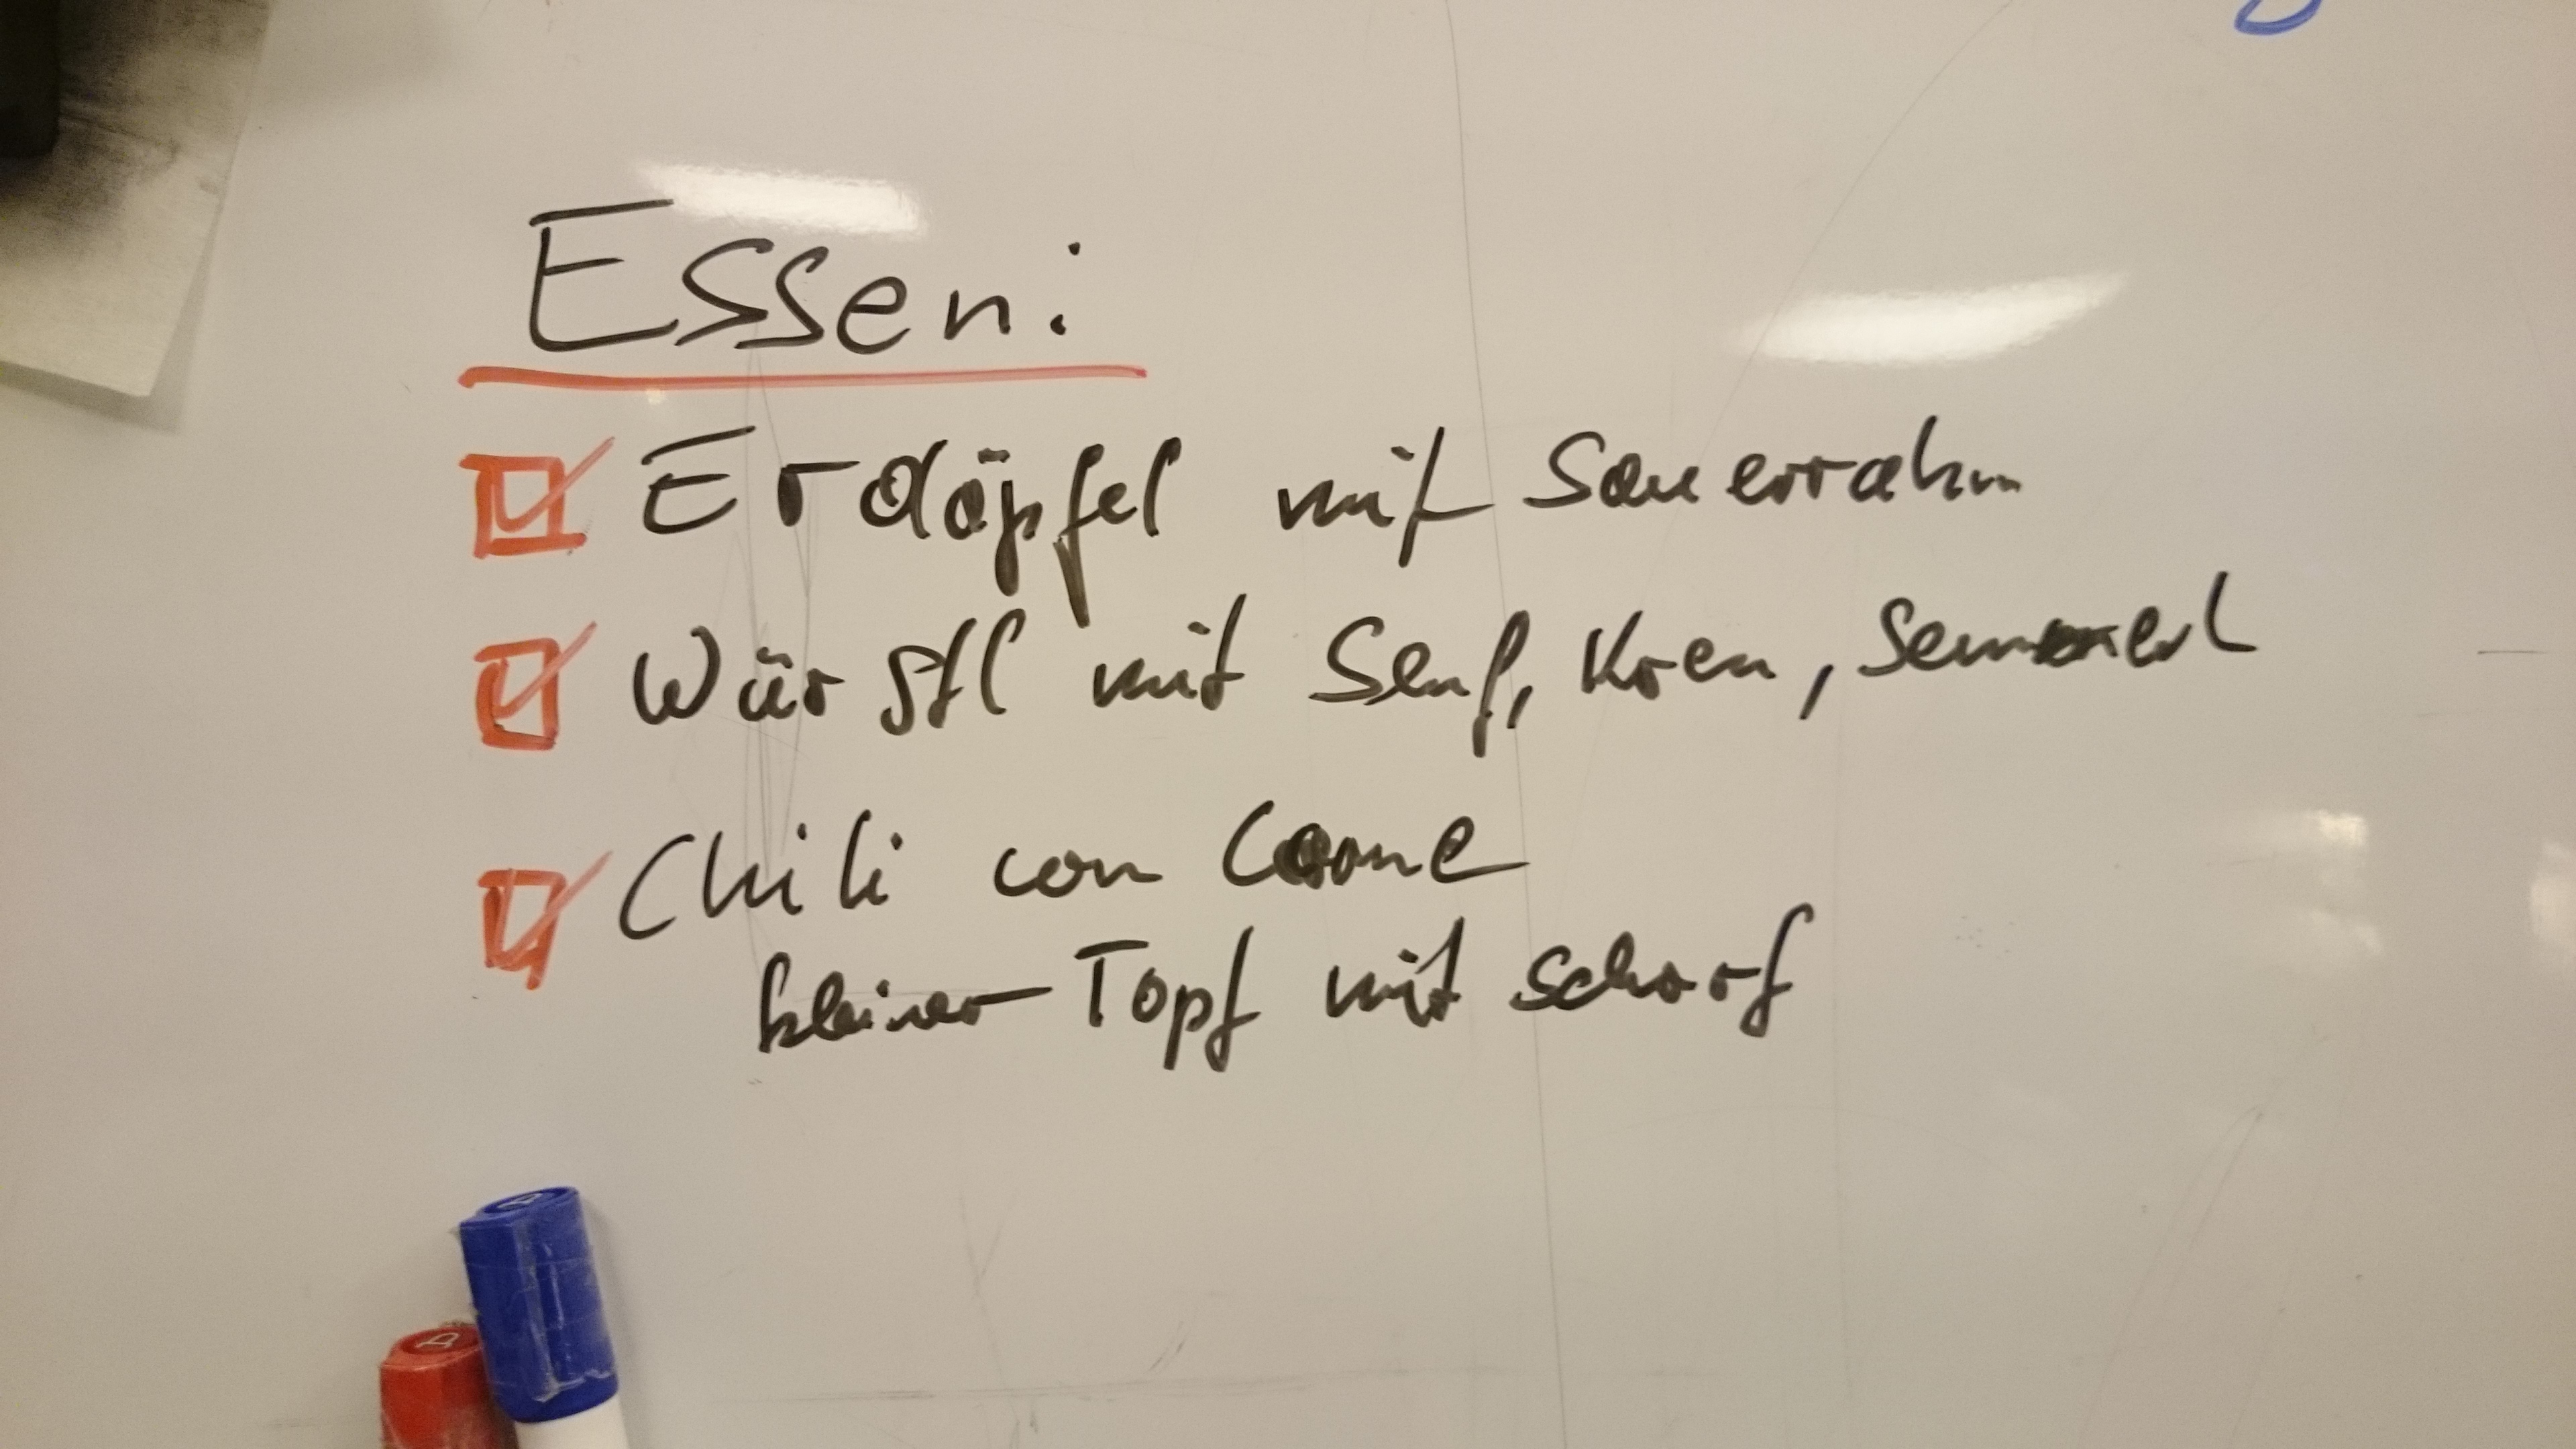 Essen:
Erdäpfel mit Sauerrahm
Würstl mit Senf, Kren, Semmerl
Chili con Carne
kleiner Topf mit scharf